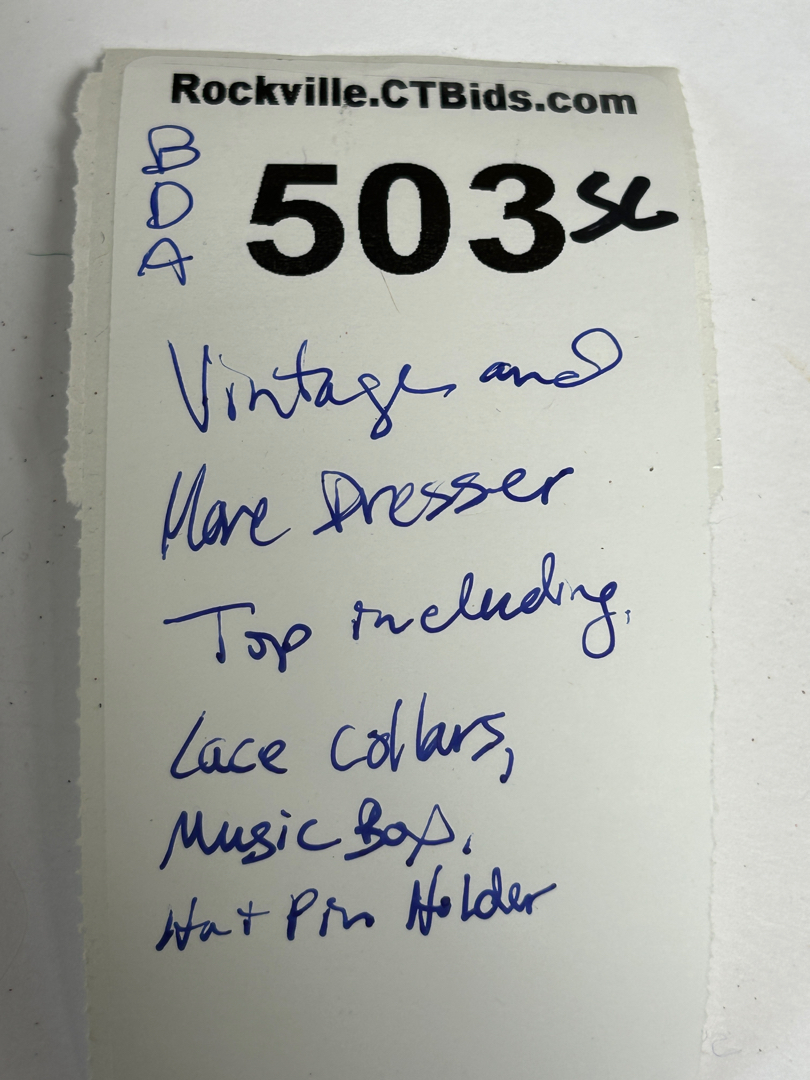 Rockville.CTBids.com
B
D
A
503 SC
Vintage and
More Dresser
Top including,
Lace Collars,
Music Box,
Hat Pin Holder